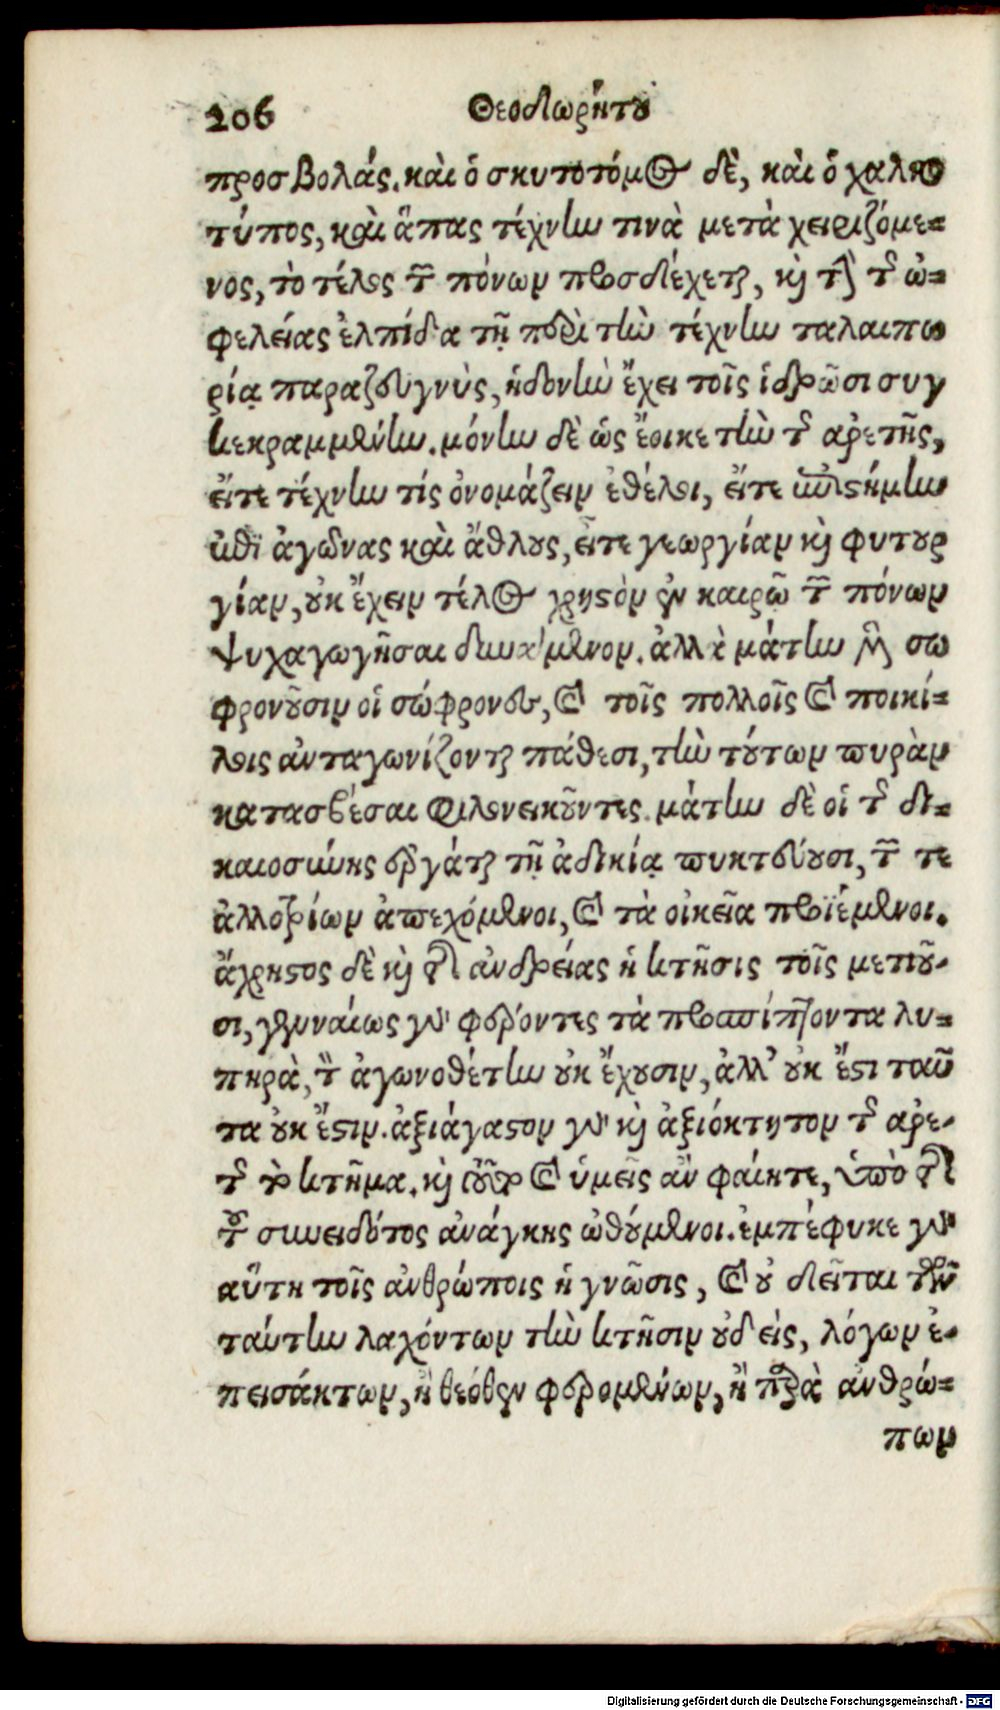 206 Θεοδωρήτου
προσβολάς. καὶ ὁ σκυτοτόμος δὲ, καὶ ὁ χαλκο
τύπος, καὶ ἅπας τέχνην τινὰ μεταχειριζόμε=
νος, τὸ τέλος τῶν πόνων προσδέχεται, καὶ τὴν τῆς ὠ=
φελείας ἐλπίδα τῇ περὶ τὴν τέχνην ταλαιπω
ρίᾳ παραζευγνὺς, ἡδονὴν ἔχει τοῖς ἱδρῶσι συγ
κεκραμμένην. μόνην δὲ ὡς ἔοικε τὴν τῆς ἀρετῆς,
εἴτε τέχνην τίς ὀνομάζειν ἐθέλοι, εἴτε ἐπιστήμην
εἴτε ἀγῶνας καὶ ἄθλους, εἴτε γεωργίαν καὶ φυτουρ
γίαν, οὐκ ἔχειν τέλος χρηστὸν ἐν καιρῷ τῶν πόνων
ψυχαγωγῆσαι δυνάμενον. ἀλλὰ μάτην μὲν σω
φρονοῦσιν οἱ σώφρονες, καὶ τοῖς πολλοῖς καὶ ποικί=
λοις ἀνταγωνίζονται πάθεσι, τὴν τούτων πυρὰν
κατασβέσαι φιλονεικοῦντες. μάτην δὲ οἱ τῆς δι=
καιοσύνης ἐργάται τῇ ἀδικίᾳ πυκτεύουσι, τῶν τε
ἀλλοτρίων ἀπεχόμενοι, καὶ τὰ οἰκεῖα προϊέμενοι.
ἄχρηστος δὲ καὶ τῆς ἀνδρείας ἡ κτῆσις τοῖς μετιοῦ-
σι, γενναίως γὰρ φέροντες τὰ προσπίπτοντα λυ=
πηρὰ, τὸν ἀγωνοθέτην οὐκ ἔχουσιν, ἀλλ' οὐκ ἔστι ταῦ
τα οὐκ ἔστιν. ἀξιάγαστον γὰρ καὶ ἀξιόκτητον τῆς ἀρε-
τῆς τὸ κτῆμα. καὶ τοῦτο καὶ ὑμεῖς ἂν φαίητε, ὑπὸ τῆς
τοῦ συνειδότος ἀνάγκης ὠθούμενοι. ἐμπέφυκε γὰρ
αὕτη τοῖς ἀνθρώποις ἡ γνῶσις, καὶ οὐ δεῖται τῶν
ταύτην λαχόντων τὴν κτῆσιν οὐδεὶς, λόγων ἐ-
πεισάκτων, ἢ θεόθεν φερομένων, ἢ παρὰ ἀνθρώ=
πων
Digitalisierung gefördert durch die Deutsche Forschungsgemeinschaft - DFG